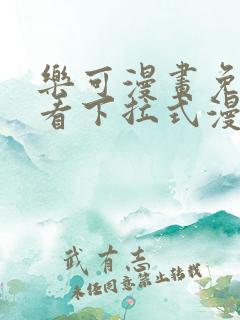 樂可漫畫免
看下拉式漫
武有志
未经同意禁止转载